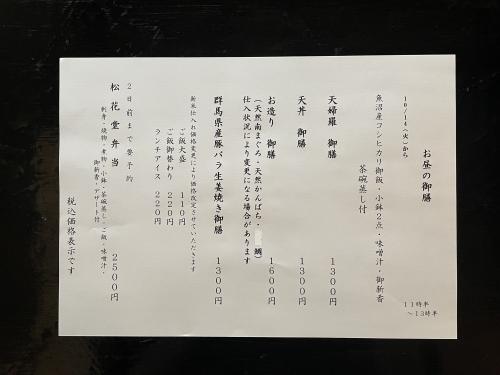 10/14(火)から
お昼の御膳
11時半
~13時半
魚沼産コシヒカリ御飯・小鉢2点・味噌汁・御新香
茶碗蒸し付
天婦羅 御膳 1300円
天丼 御膳 1300円
お造り 御膳 1600円
(天然南まぐろ・天然かんぱち・ 鯛)
仕入状況により変更になる場合があります
群馬県産豚バラ生姜焼き御膳 1300円
新米仕入れ価格変更により価格改定させていただきます
ご飯大盛 110円
ご飯御替わり 220円
ランチアイス 220円
2日前まで要予約
松花堂弁当 2500円
刺身・焼物・煮物・小鉢・茶碗蒸し・ご飯・味噌汁・
御新香・デザート付
税込価格表示です